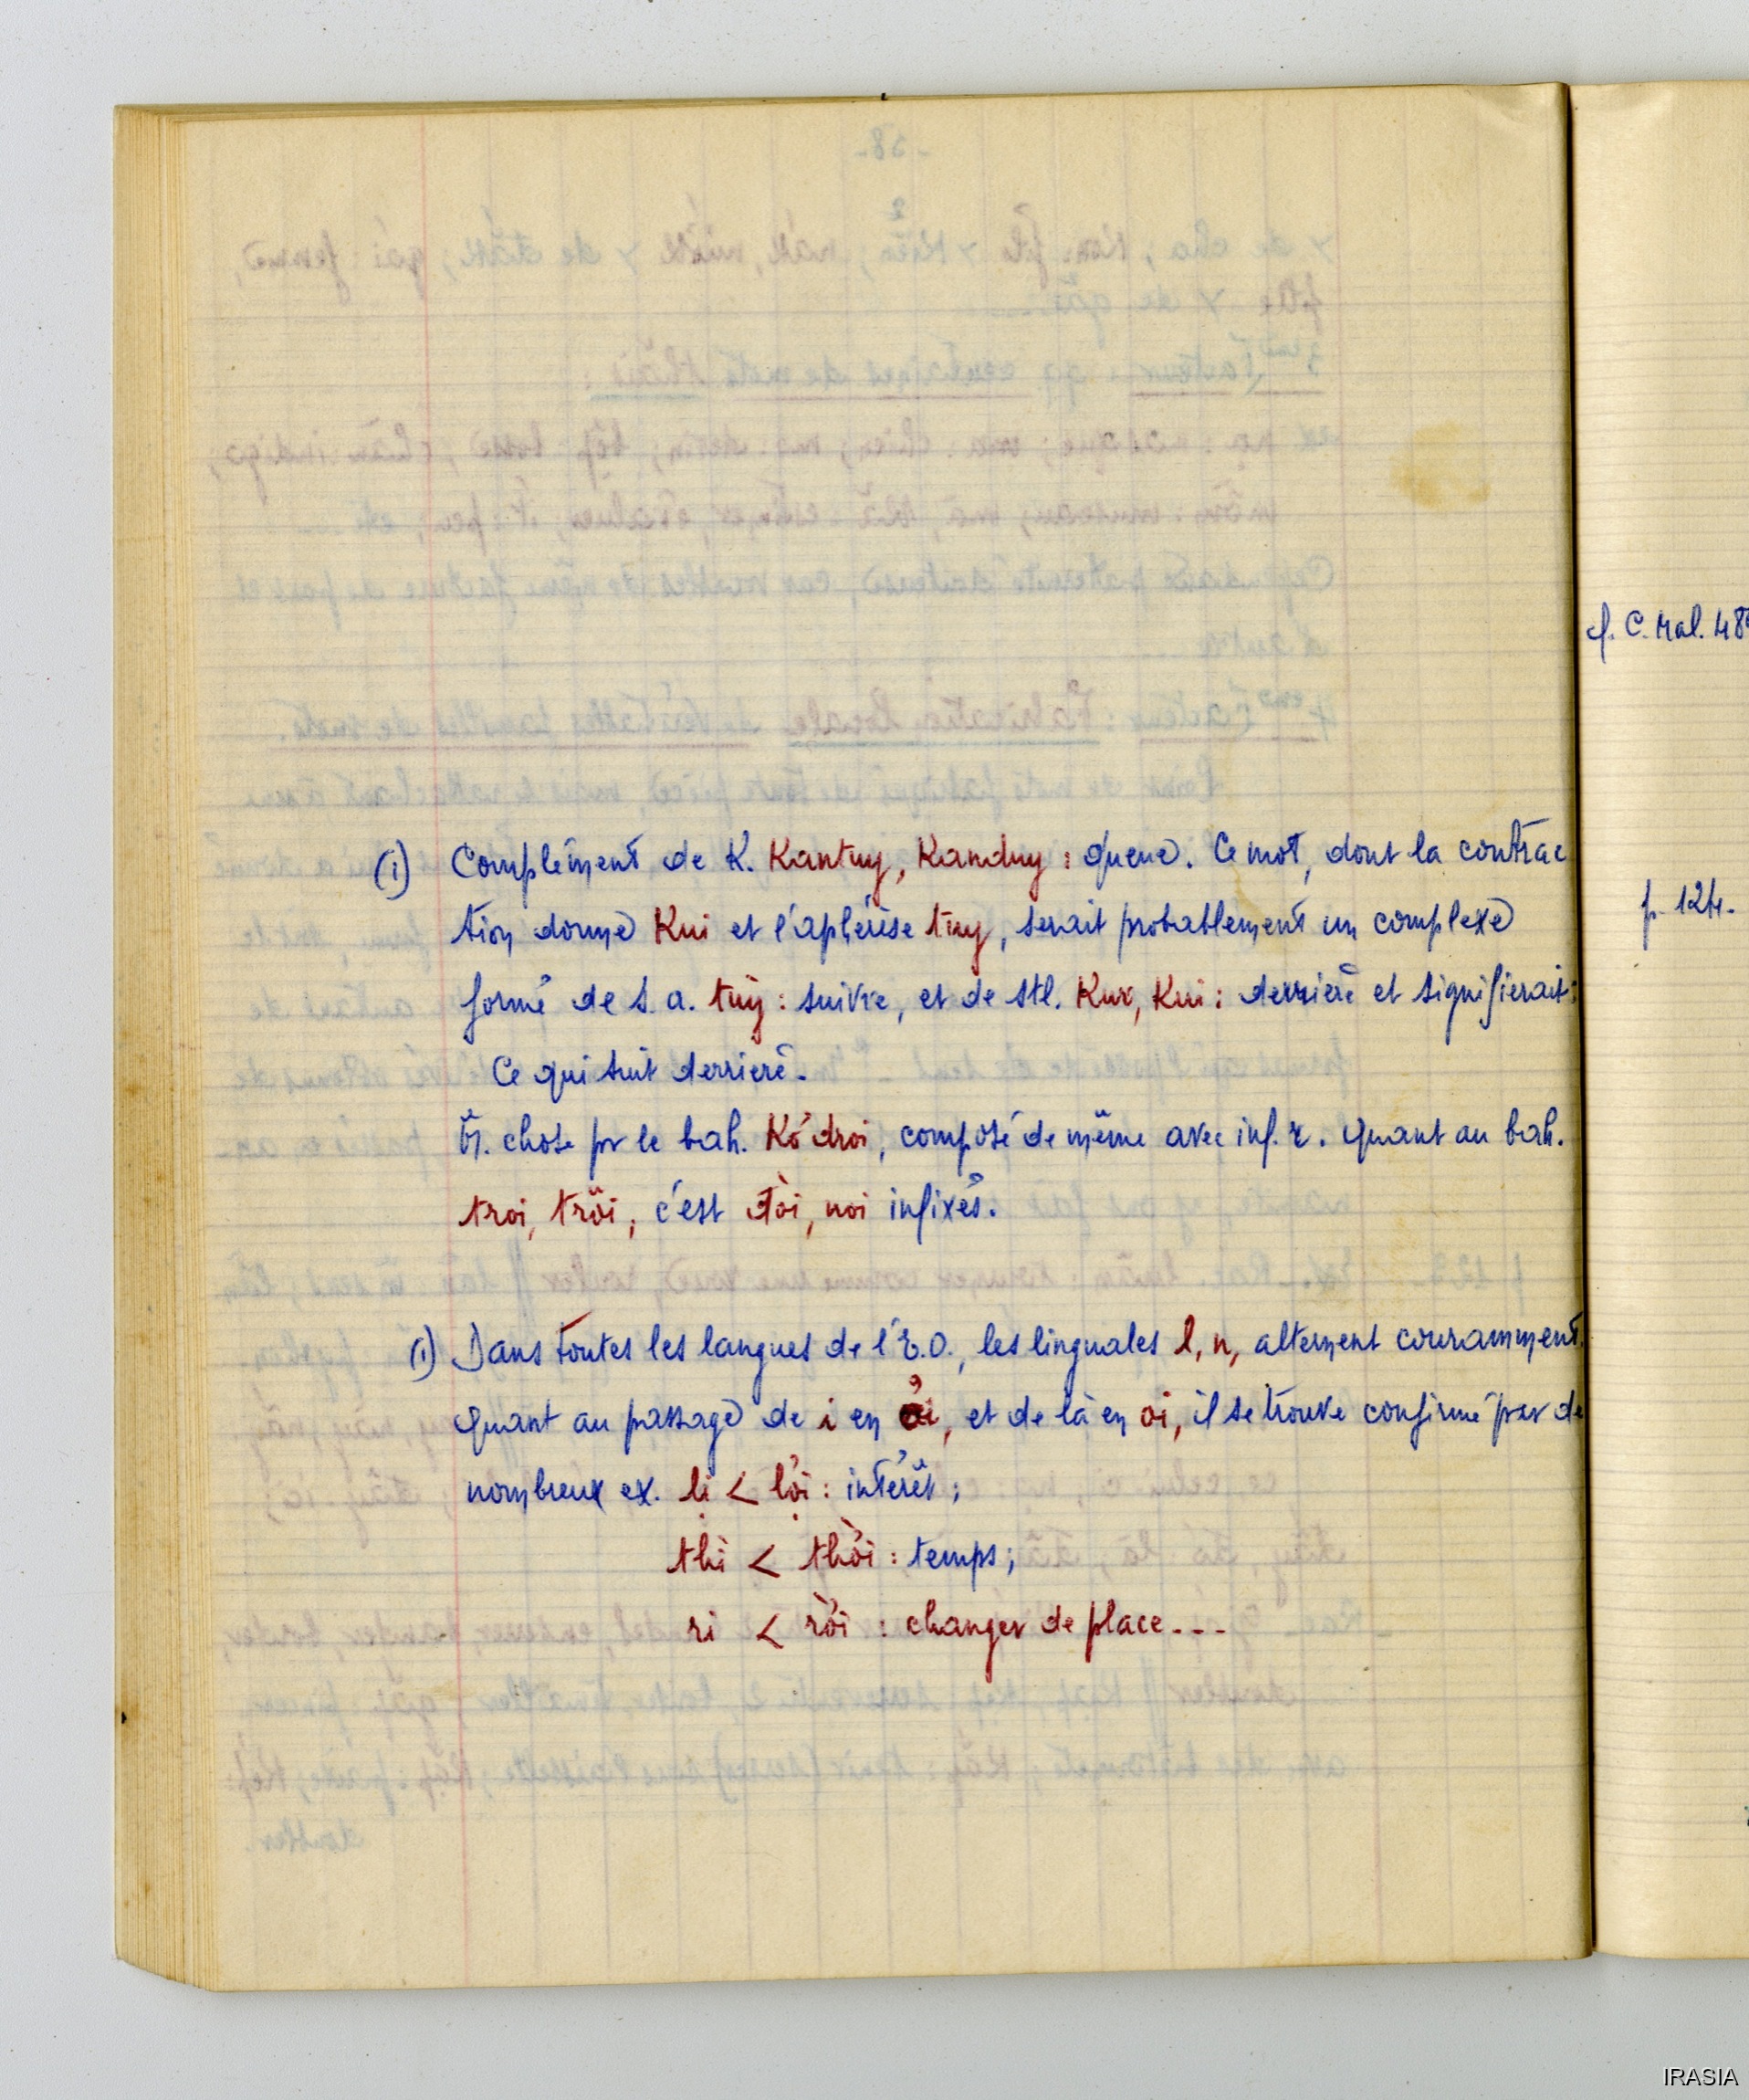 (1) Complément de K. Kantuy, Kanduy : queue. Ce mot, dont la contrac
tion donne Kui et l'aphérèse tuy, serait probablement un complexe
formé de s. a. tùy : suivre, et de stl. Kur, Kui : derrière et signifierait :
Ce qui suit derrière.
M̂. chose pr le bah. Kơ̆droi, composé de même avec inf. r. Quant au bah.
troi, trŏi, c'est đòi, noi infixés.
(1) Dans toutes les langues de l'E.O., les linguales l, n, alternent couramment.
Quant au passage de i en ơi, et de là en oi, il se trouve confirmé par de
nombreux ex. lị < lợi : intérêt ;
thì < thời : temps ;
ri < rời : changer de place - - -
cf. C. Mal. 48
p. 124.
IRASIA